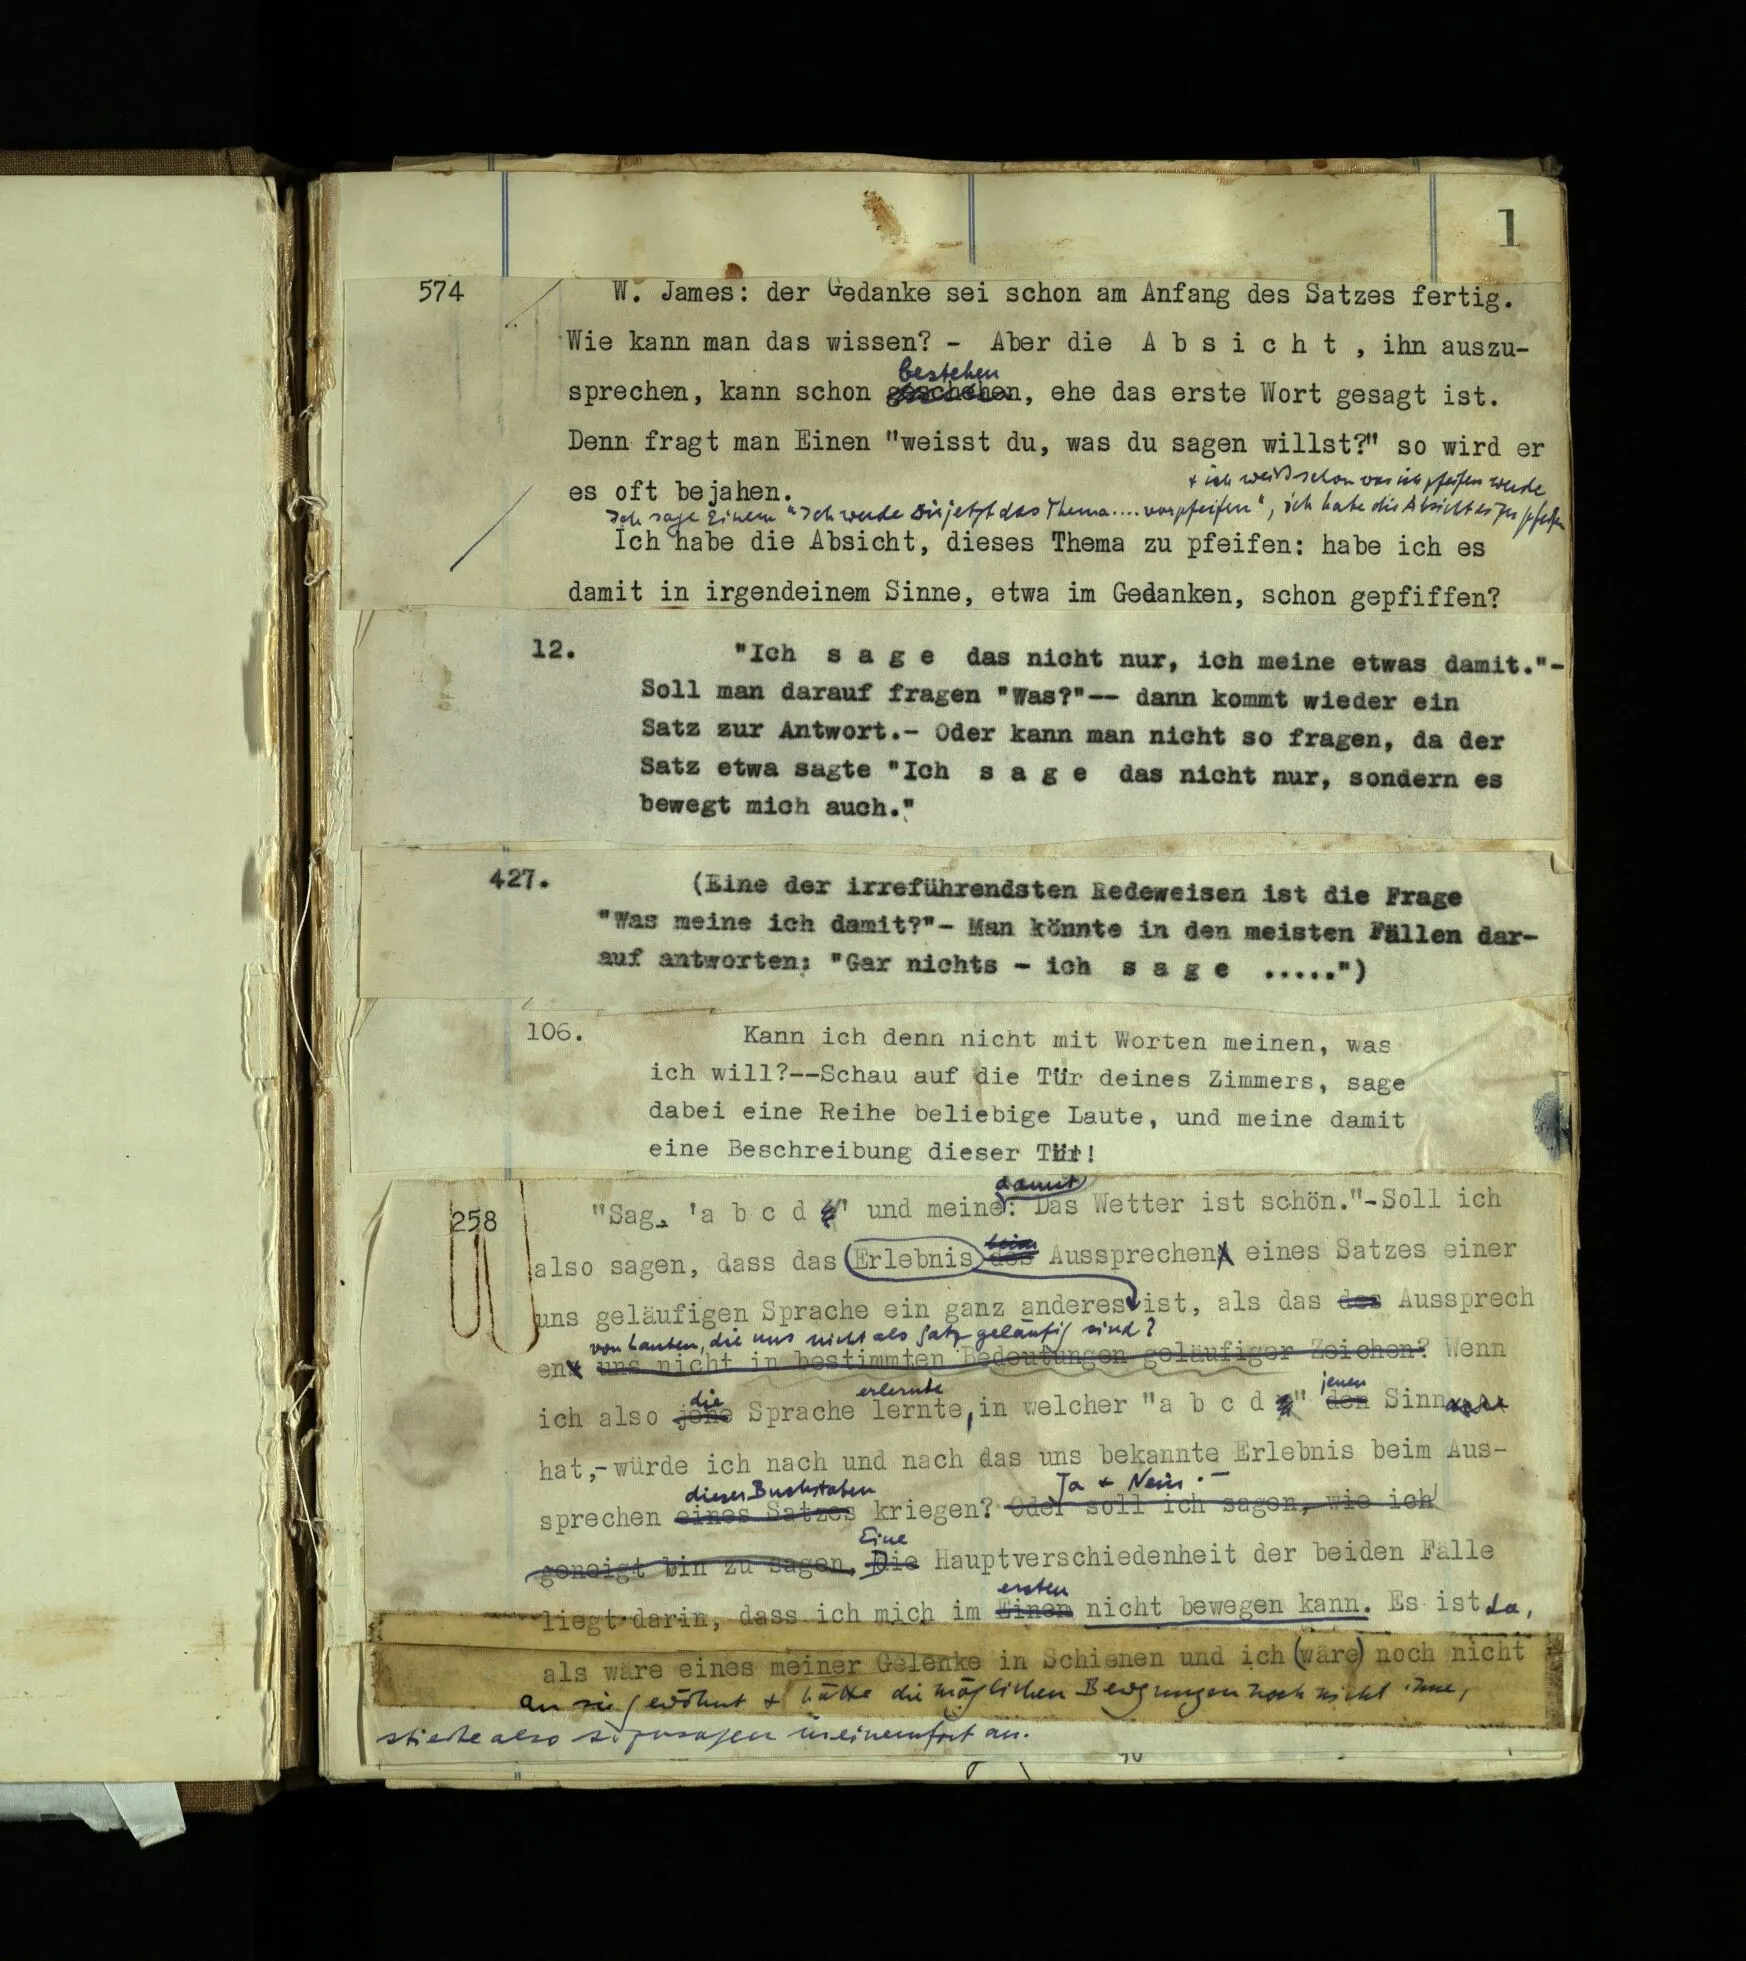 1
574 W. James: der Gedanke sei schon am Anfang des Satzes fertig.
Wie kann man das wissen? - Aber die A b s i c h t , ihn auszu-
bestehen
sprechen, kann schon geschehen, ehe das erste Wort gesagt ist.
Denn fragt man Einen "weisst du, was du sagen willst?" so wird er
+ ich weiß schon was ich pfeifen werde
es oft bejahen.
Ich sage Einem "Ich werde Dir jetzt das Thema .... vorpfeifen", ich habe die Absicht es zu pfeifen
Ich habe die Absicht, dieses Thema zu pfeifen: habe ich es
damit in irgendeinem Sinne, etwa im Gedanken, schon gepfiffen?
12. "Ich s a g e das nicht nur, ich meine etwas damit."-
Soll man darauf fragen "Was?"-- dann kommt wieder ein
Satz zur Antwort.- Oder kann man nicht so fragen, da der
Satz etwa sagte "Ich s a g e das nicht nur, sondern es
bewegt mich auch."
427. (Eine der irreführendsten Redeweisen ist die Frage
"Was meine ich damit?"- Man könnte in den meisten Fällen dar-
auf antworten: "Gar nichts - ich s a g e .....")
106. Kann ich denn nicht mit Worten meinen, was
ich will?--Schau auf die Tür deines Zimmers, sage
dabei eine Reihe beliebige Laute, und meine damit
eine Beschreibung dieser Tür!
damit
258 "Sag, 'a b c d ' und meine: Das Wetter ist schön."-Soll ich
beim
also sagen, dass das Erlebnis des Aussprechen eines Satzes einer
uns geläufigen Sprache ein ganz anderes ist, als das des Aussprech
von Lauten, die uns nicht als Satz geläufig sind?
en uns nicht in bestimmten Bedeutungen geläufiger Zeichen? Wenn
die erlernte jenen
ich also jene Sprache lernte, in welcher "a b c d " den Sinn
hat,- würde ich nach und nach das uns bekannte Erlebnis beim Aus-
dieser Buchstaben Ja + Nein. -
sprechen eines Satzes kriegen? Oder soll ich sagen, wie ich
Eine
geneigt bin zu sagen, Die Hauptverschiedenheit der beiden Fälle
ersten
liegt darin, dass ich mich im Einen nicht bewegen kann. Es ist da,
als wäre eines meiner Gelenke in Schienen und ich (wäre) noch nicht
an sie gewöhnt + hätte die möglichen Bewegungen noch nicht inne,
stieße also sozusagen in einemfort an.